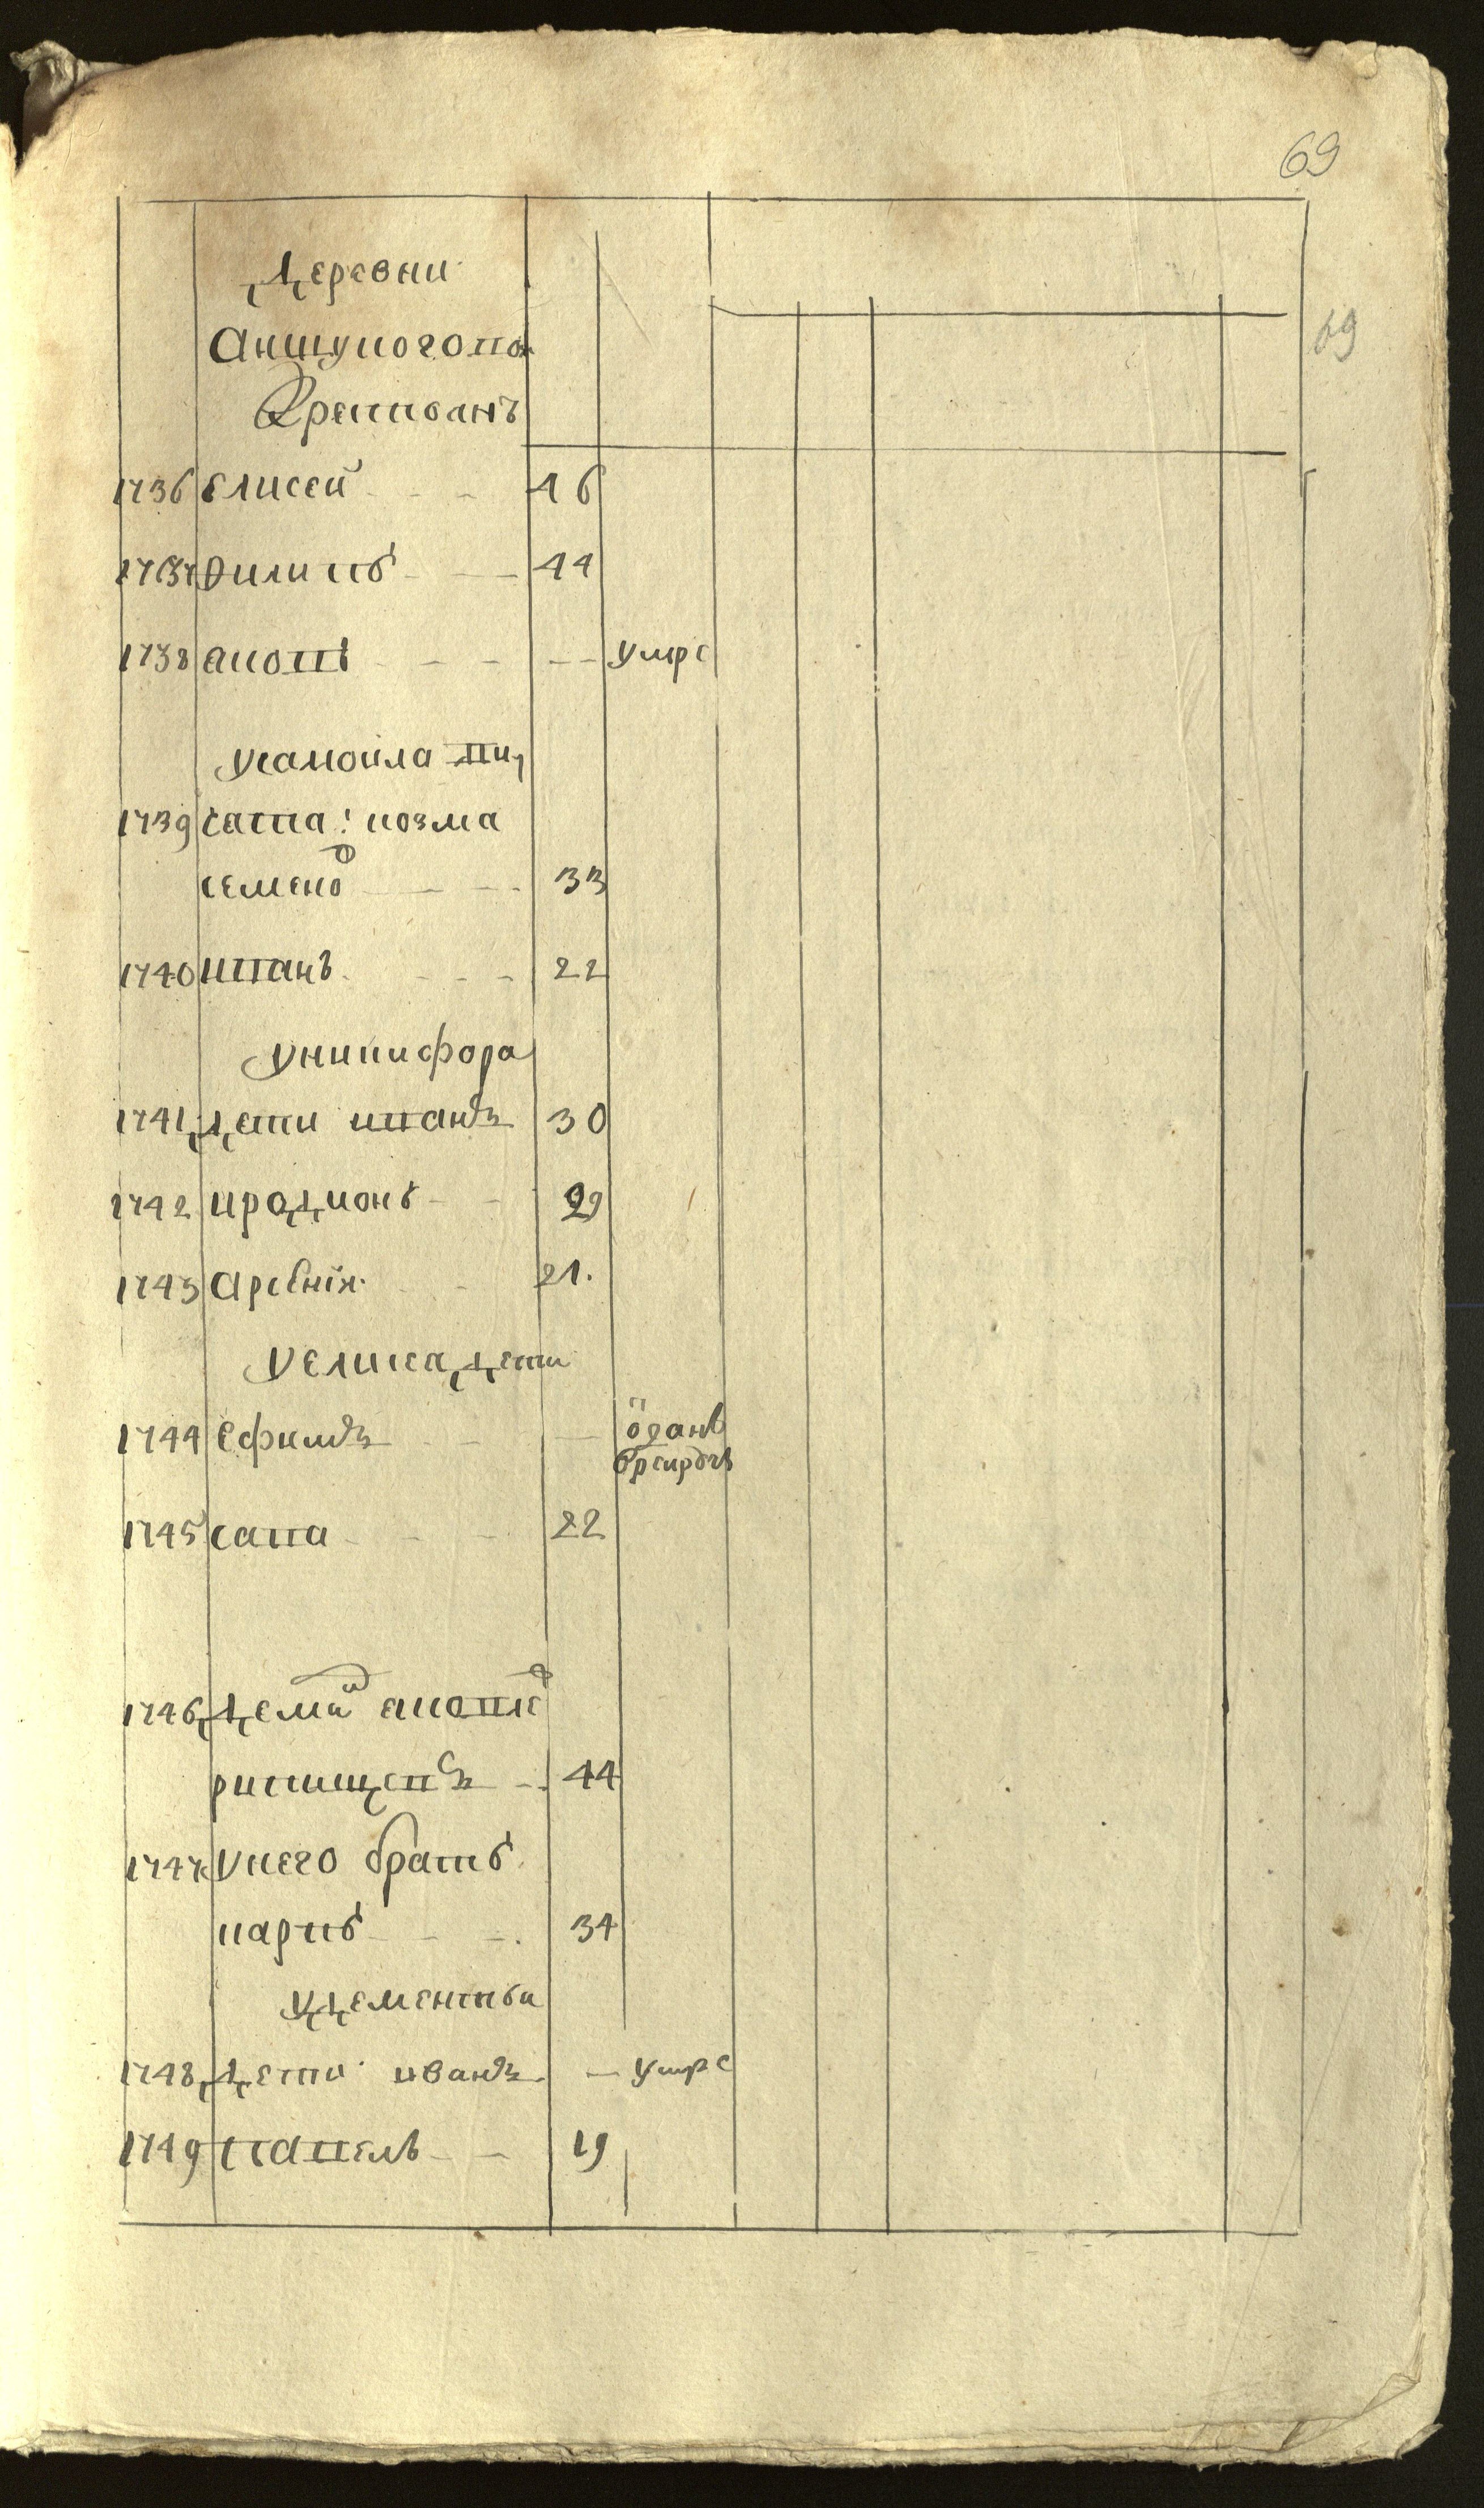 69
69
Деревни
Аншукогопа
Крестьянъ
1736 елисей 46
1737 Филипъ 44
1738 аковъ умре
у самоила пи,
1739 савва: козма
семено 33
1740 иванъ 22
у никифора
1741 дети иванъ 30
1742 иродионъ 29
1743 Арсѣнiи 21.
у елисея дети
1744 ефимъ одданъ
врекруты
1745 савва 22
1746 демий аковле
44
1747 у него братъ
карпъ 34
у дементья
1748 дети иванъ умре
1749 павелъ 19